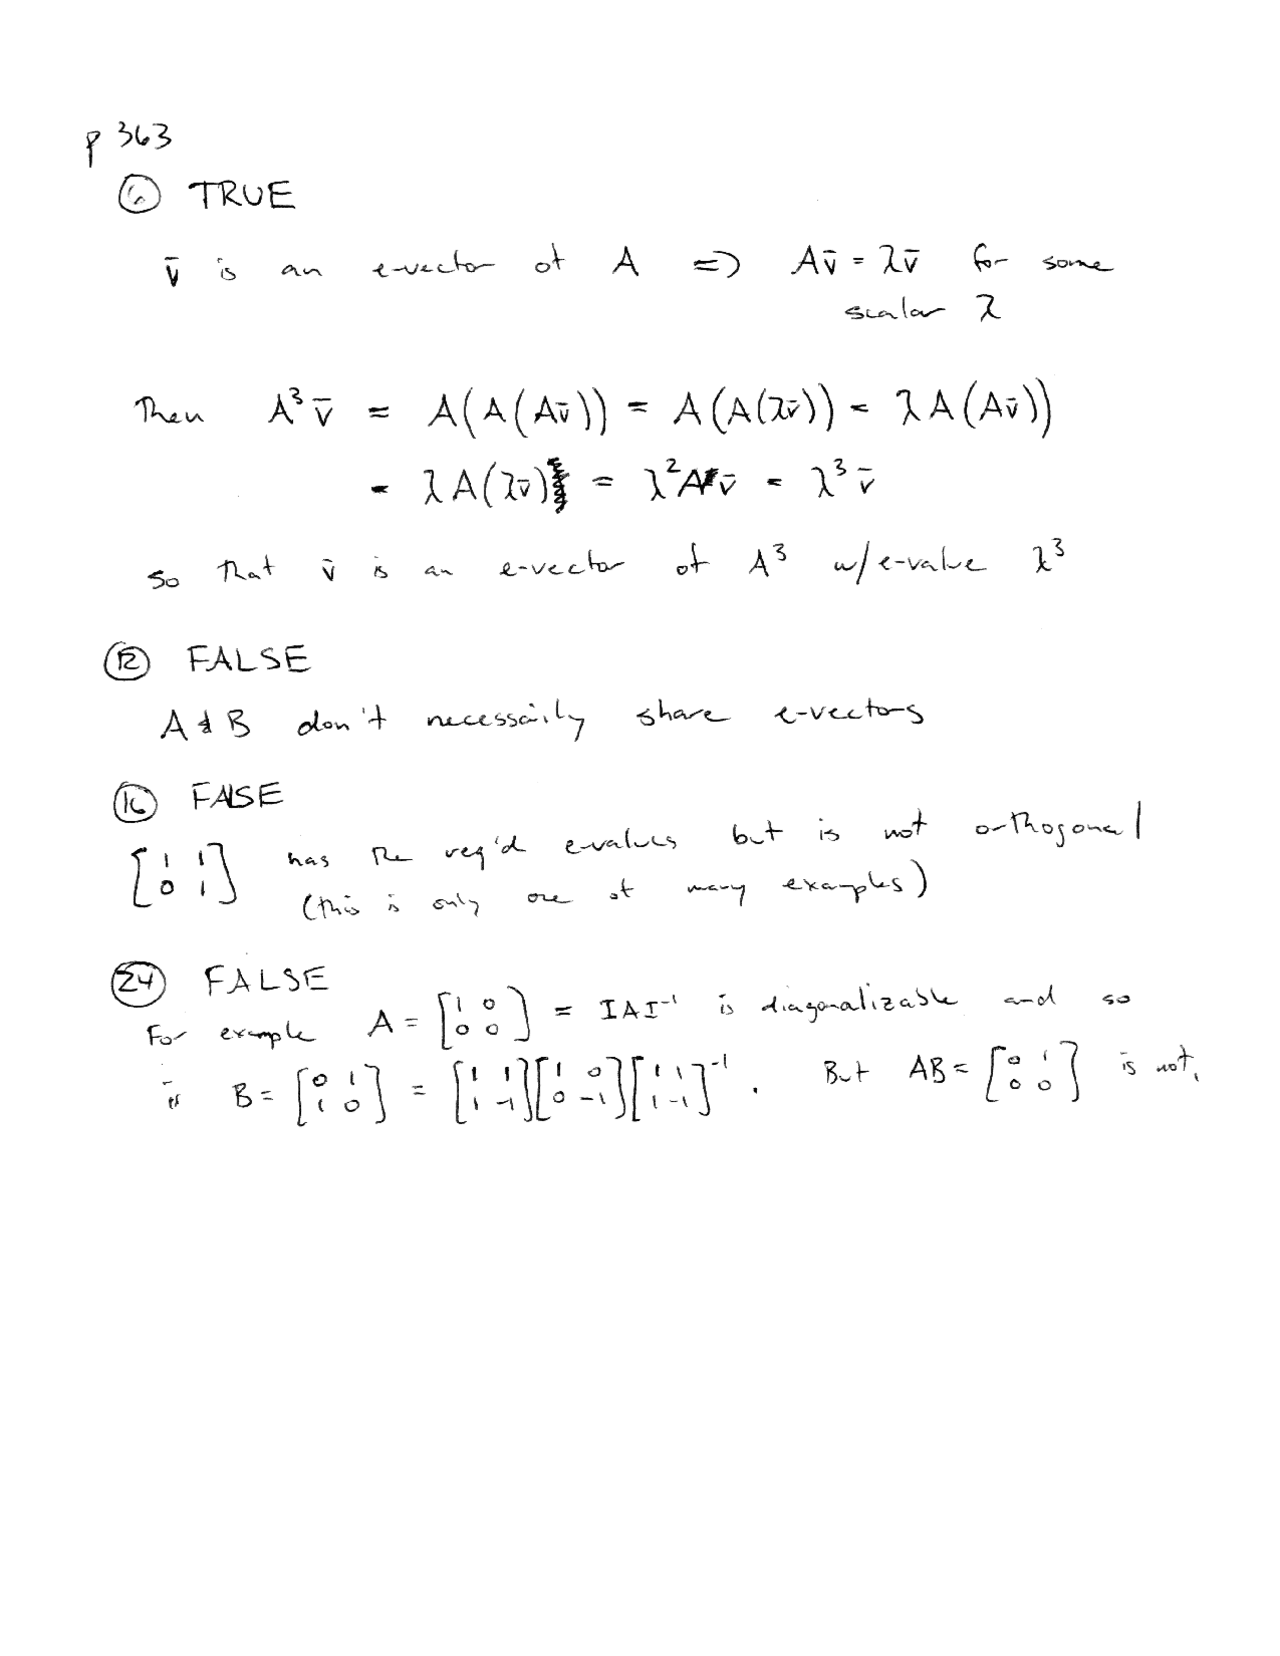 p 363
⑥ TRUE
v̄ is an e-vector of A ⇒ Av̄ = λv̄ for some
scalar λ
Then A³v̄ = A(A(Av̄)) = A(A(λv̄)) = λA(Av̄))
= λA(λv̄) = λ²Av̄ = λ³v̄
so that v̄ is an e-vector of A³ w/e-value λ³
⑫ FALSE
A & B don't necessairily share e-vectors
⑯ FALSE
[1 1; 0 1] has the req'd e-values but is not orthogonal
(this is only one of many examples)
㉔ FALSE
For example A = [1 0; 0 0] = IAI⁻¹ is diagonalizable and so
is B = [0 1; 1 0] = [1 1; 1 -1][1 0; 0 -1][1 1; 1 -1]⁻¹. But AB = [0 1; 0 0] is not.